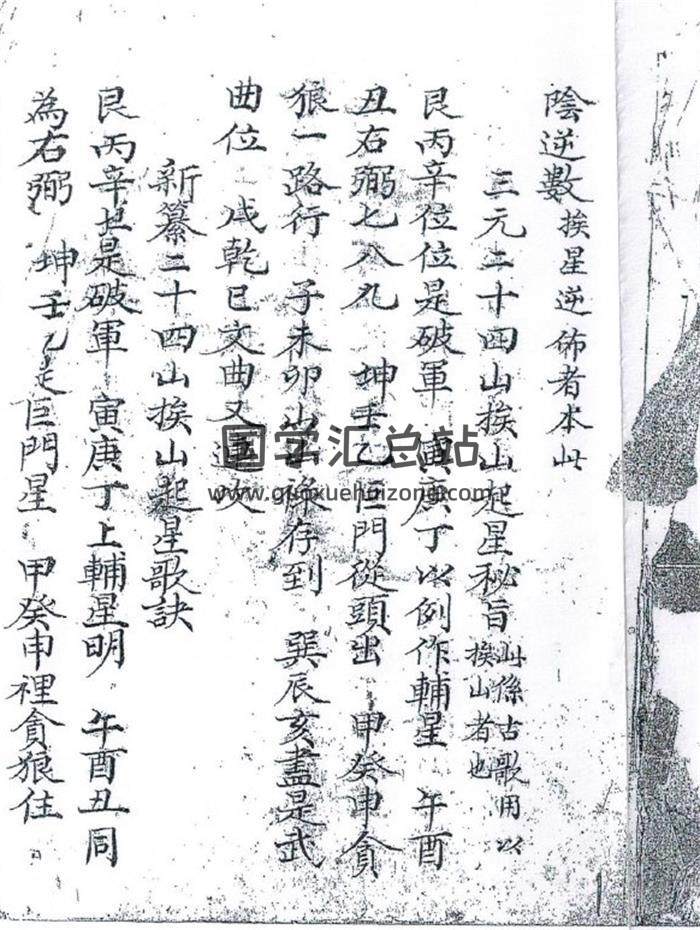 陰逆數 挨星逆佈者本此
三元二十四山挨山起星秘旨 此係古歌用以
挨山者也
艮丙辛位位是破軍 寅庚丁以例作輔星 午酉
丑右弼七八九 坤壬乙巨門從頭出 甲癸申貪
狼一路行 子未卯山祿存到 巽辰亥盡是武
曲位 戌乾巳文曲又連次
新纂二十四山挨山起星歌訣
艮丙辛也是破軍 寅庚丁上輔星明 午酉丑同
為右弼 坤壬乙是巨門星 甲癸申裡貪狼住
国学汇总站
www.guoxuehuizong.com